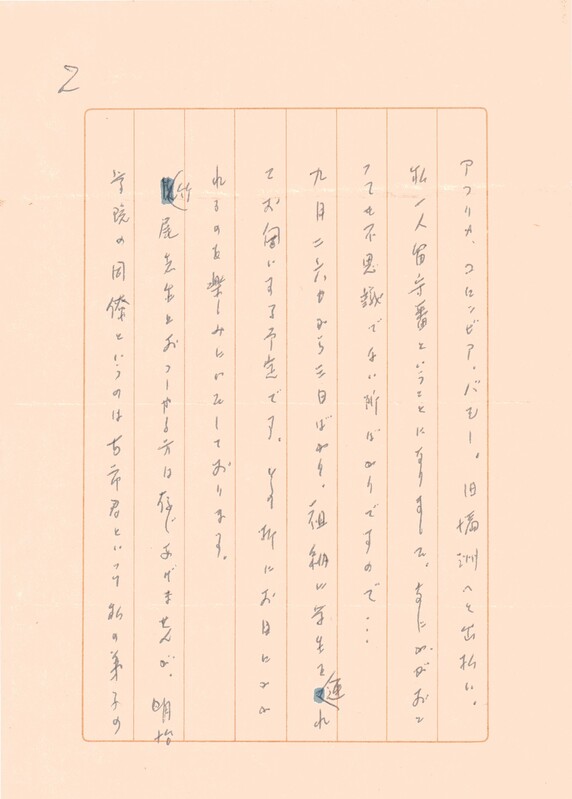 2
アフリカ、コロンビア、バリー。旧満洲へと出払い。
私一人留守番ということになりました。なにかがおこ
っても不思議でない所ばかりですので・・・
九月二六日から三日ばかり。祖納に学生を連れ
てお伺いする予定です。その折にお目にかか
れるのを楽しみにいたしております。
竹尾先生とおっしゃる方は存じあげませんが、明治
学院の同僚というのは古市君といって私の弟子の